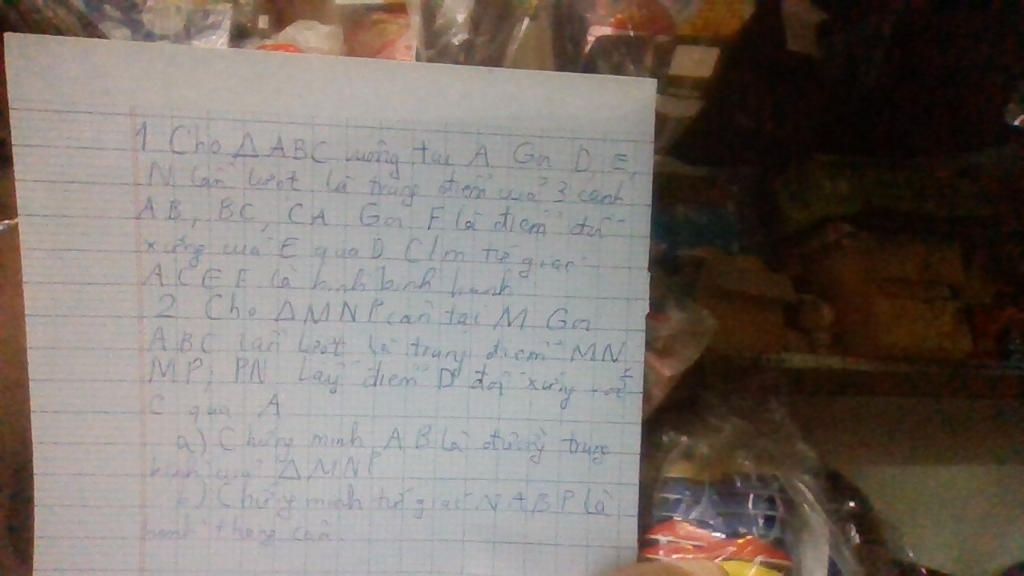 1 Cho △ABC vuông tại A Gọi D, E,
N lần lượt là trung điểm của 3 cạnh
AB, BC, CA Gọi F là điểm đối
xứng của E qua D C/m tứ giác
ACEF là hình bình hành
2 Cho △MNP cân tại M Gọi
A B C lần lượt là trung điểm MN
MP, PN Lấy điểm D đối xứng với
C qua A
a) Chứng minh AB là đường trung
bình của △MNP
b) Chứng minh tứ giác NABP là
hình thang cân.